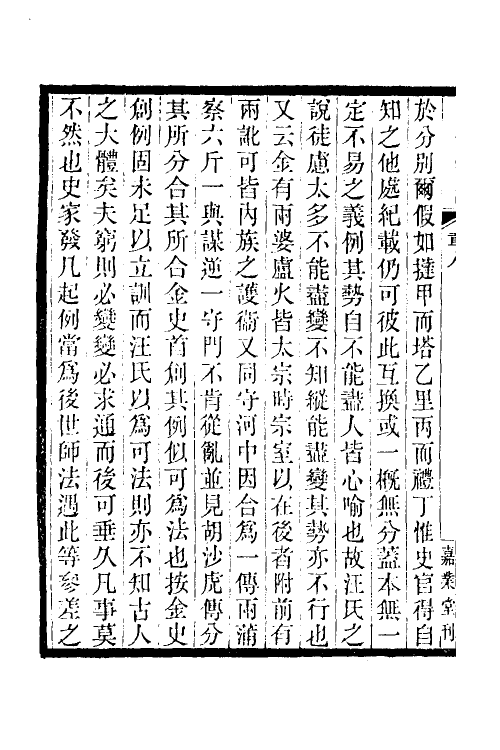 於分别爾假如撻甲而塔乙里丙而禮丁惟史官得自
知之他處紀載仍可彼此互換或一槪無分葢本無一
定不易之義例其勢自不能盡人皆心喻也故汪氏之
說徒慮太多不能盡變不知縱能盡變其勢亦不行也
又云金有兩婆盧火皆太宗時宗室以在後者附前有
兩訛可皆內族之護衞又同守河中因合爲一傳兩蒲
察六斤一與謀逆一守門不肯從亂並見胡沙虎傳分
其所分合其所合金史首創其例似可爲法也按金史
創例固未足以立訓而汪氏以爲可法則亦不知古人
之大體矣夫窮則必變變必求通而後可垂久凡事莫
不然也史家發凡起例當爲後世師法遇此等參差之
嘉業堂刊